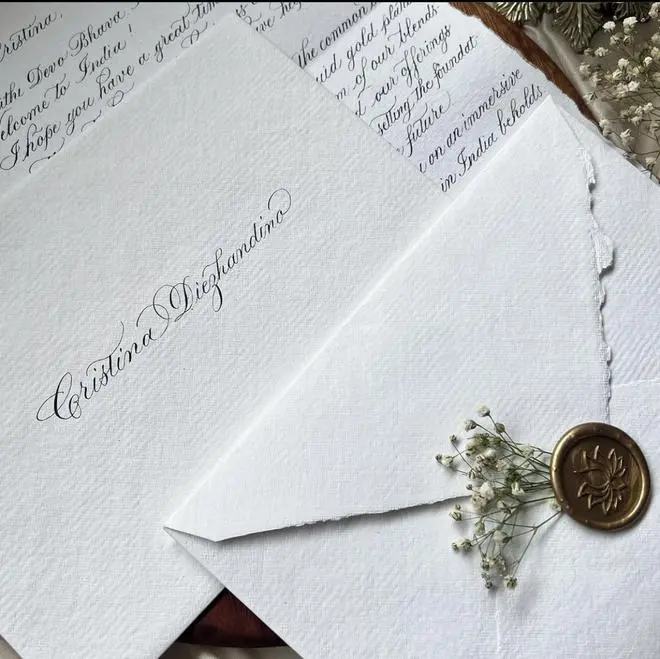 Cristina,
Athi Devo Bhava
Welcome to India!
I hope you have a great time
the common
gold
m of our blends
our offerings
setting the foundat
future
on an immersive
in India beholds
Cristina Diezhandino